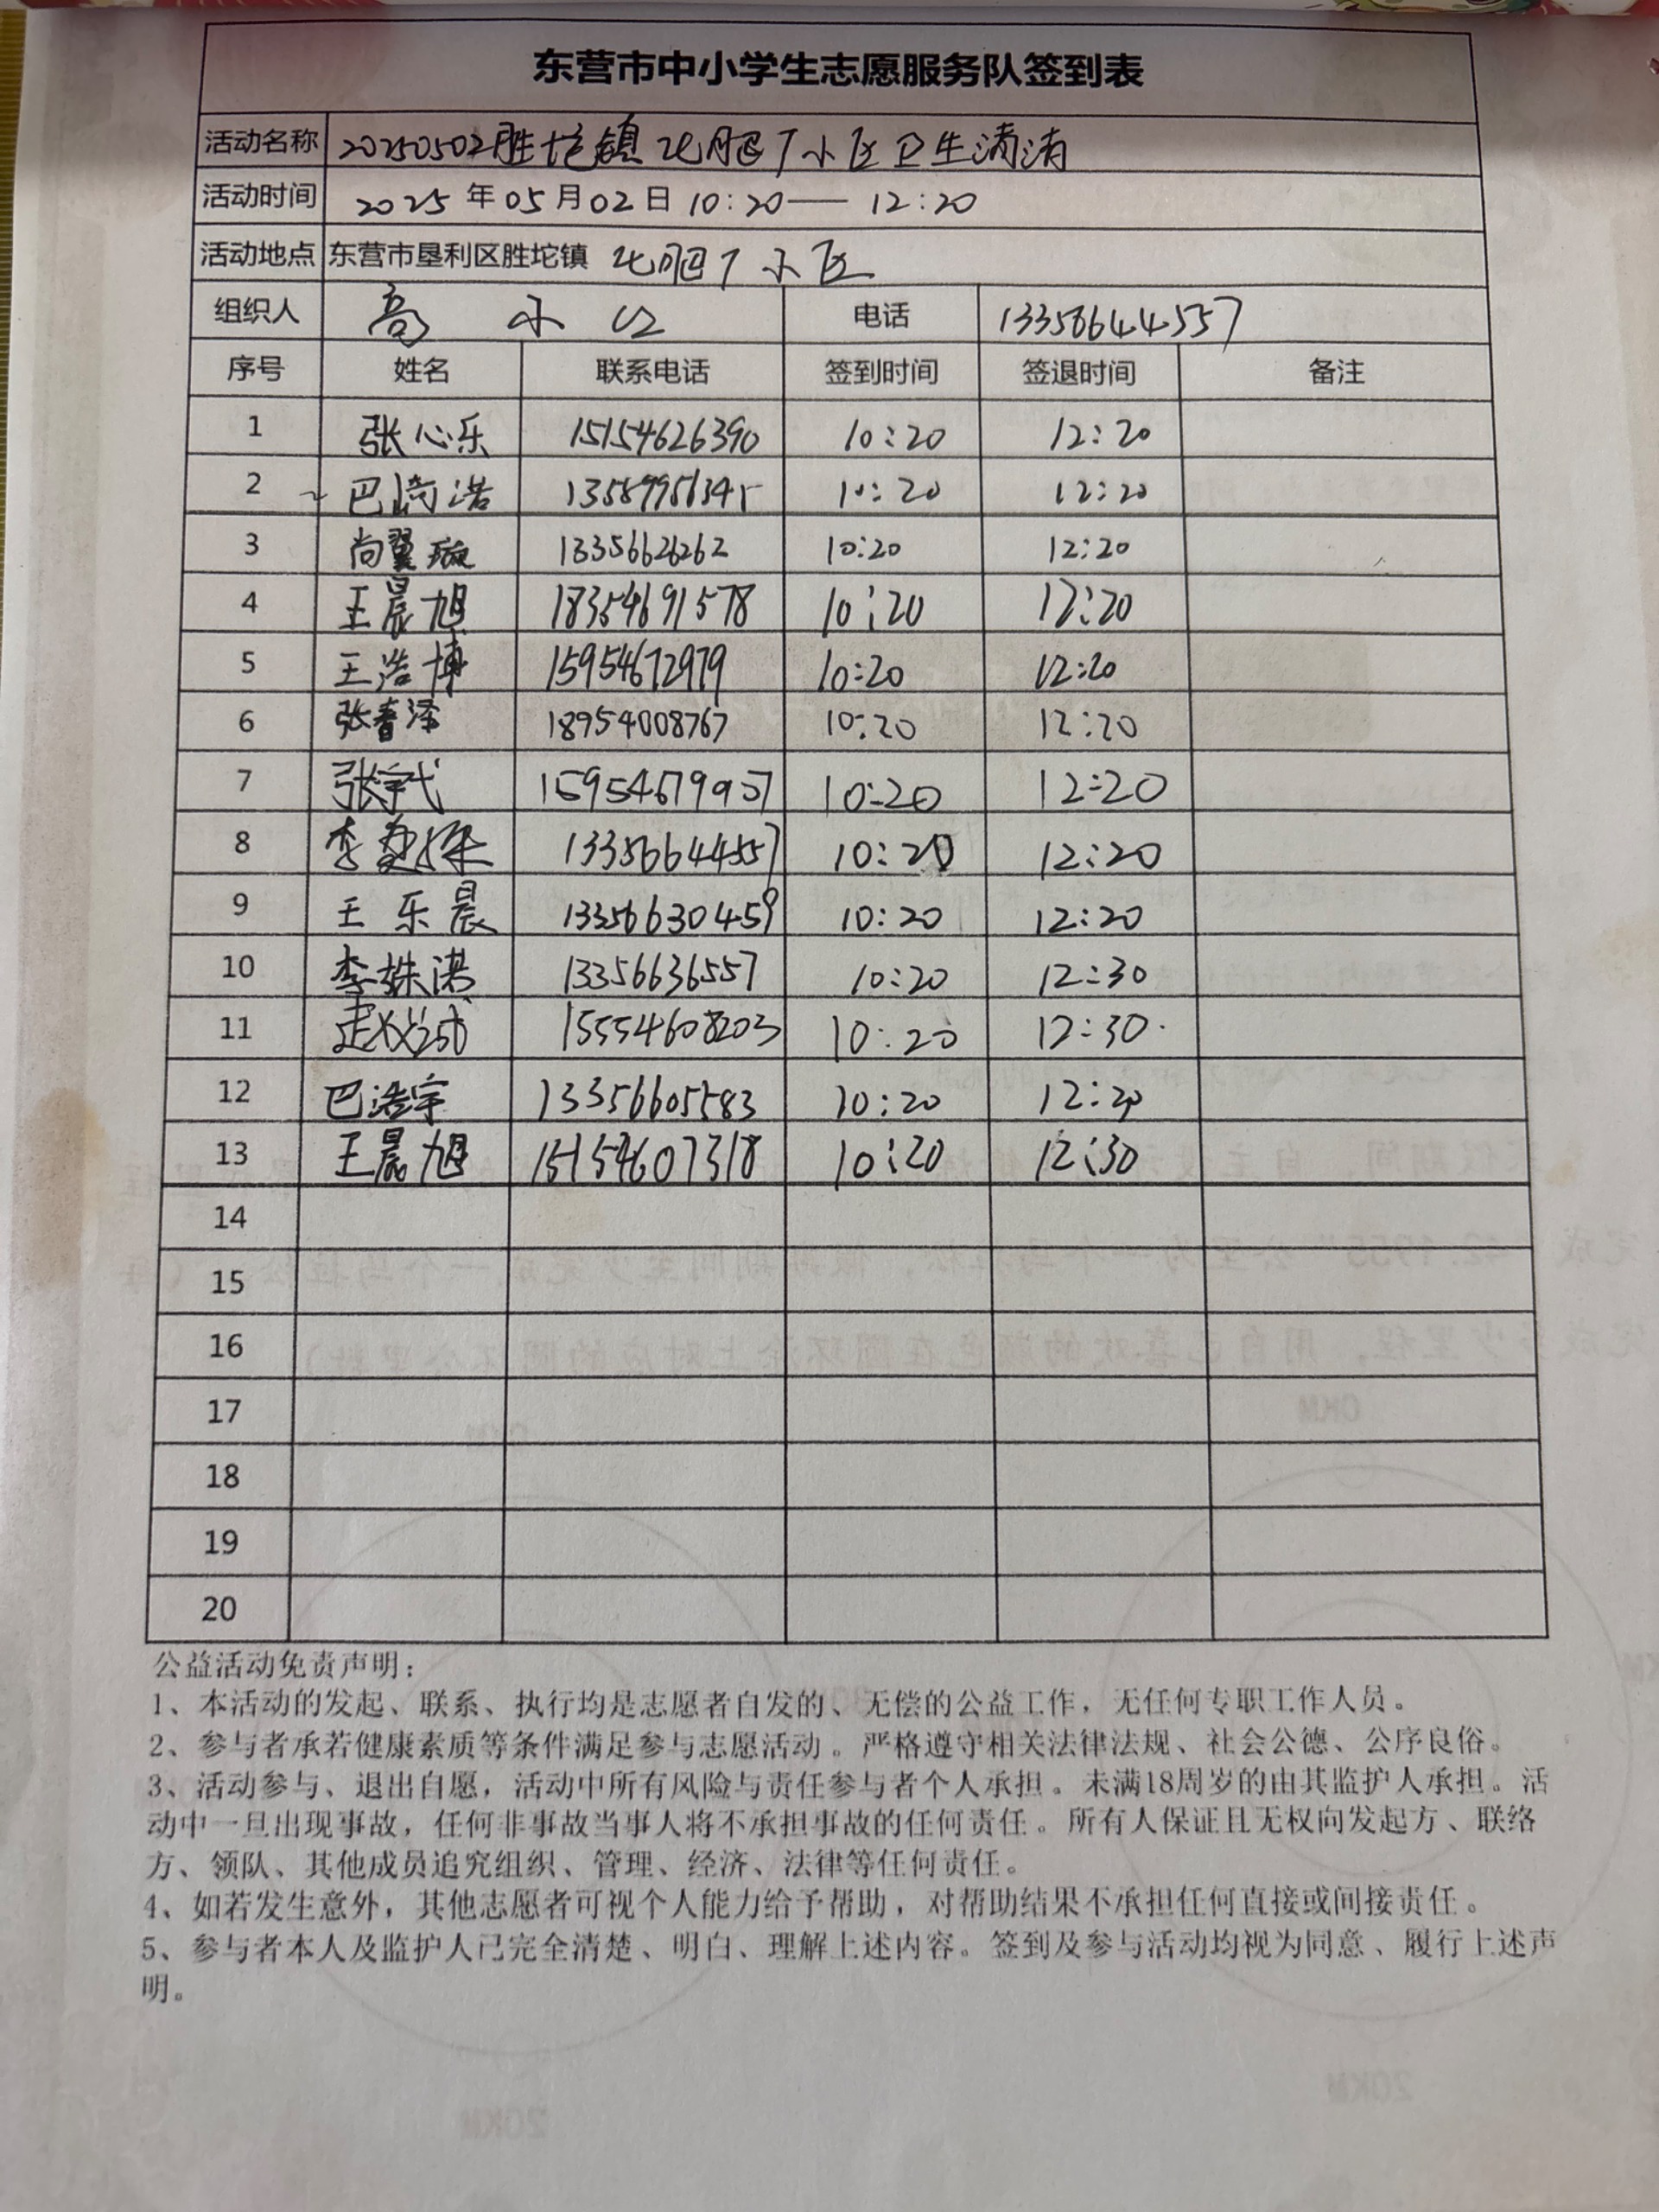 东营市中小学生志愿服务队签到表
活动名称 20250502胜坨镇化肥厂小区卫生清洁
活动时间 2025年05月02日10:20—12:20
活动地点 东营市垦利区胜坨镇 化肥厂小区
组织人 高小 电话 13356644557
序号 姓名 联系电话 签到时间 签退时间 备注
1 张心乐 15154626390 10:20 12:20
2 巴 浩 10:20 12:20
3 尚翼璇 13356626262 10:20 12:20
4 王晨旭 18354691578 10:20 12:20
5 王浩博 15954672979 10:20 12:20
6 张春泽 18954008767 10:20 12:20
7 张宇弋 10:20 12:20
8 李 13356644557 10:20 12:20
9 王乐晨 13356630459 10:20 12:20
10 李姝淇 13356636557 10:20 12:30
11 15554608203 10:20 12:30
12 巴浩宇 13356605583 10:20 12:20
13 王晨旭 15154607318 10:20 12:30
14
15
16
17
18
19
20
公益活动免责声明：
1、本活动的发起、联系、执行均是志愿者自发的、无偿的公益工作，无任何专职工作人员。
2、参与者承若健康素质等条件满足参与志愿活动。严格遵守相关法律法规、社会公德、公序良俗。
3、活动参与、退出自愿，活动中所有风险与责任参与者个人承担。未满18周岁的由其监护人承担。活
动中一旦出现事故，任何非事故当事人将不承担事故的任何责任。所有人保证且无权向发起方、联络
方、领队、其他成员追究组织、管理、经济、法律等任何责任。
4、如若发生意外，其他志愿者可视个人能力给予帮助，对帮助结果不承担任何直接或间接责任。
5、参与者本人及监护人已完全清楚、明白、理解上述内容。签到及参与活动均视为同意、履行上述声
明。